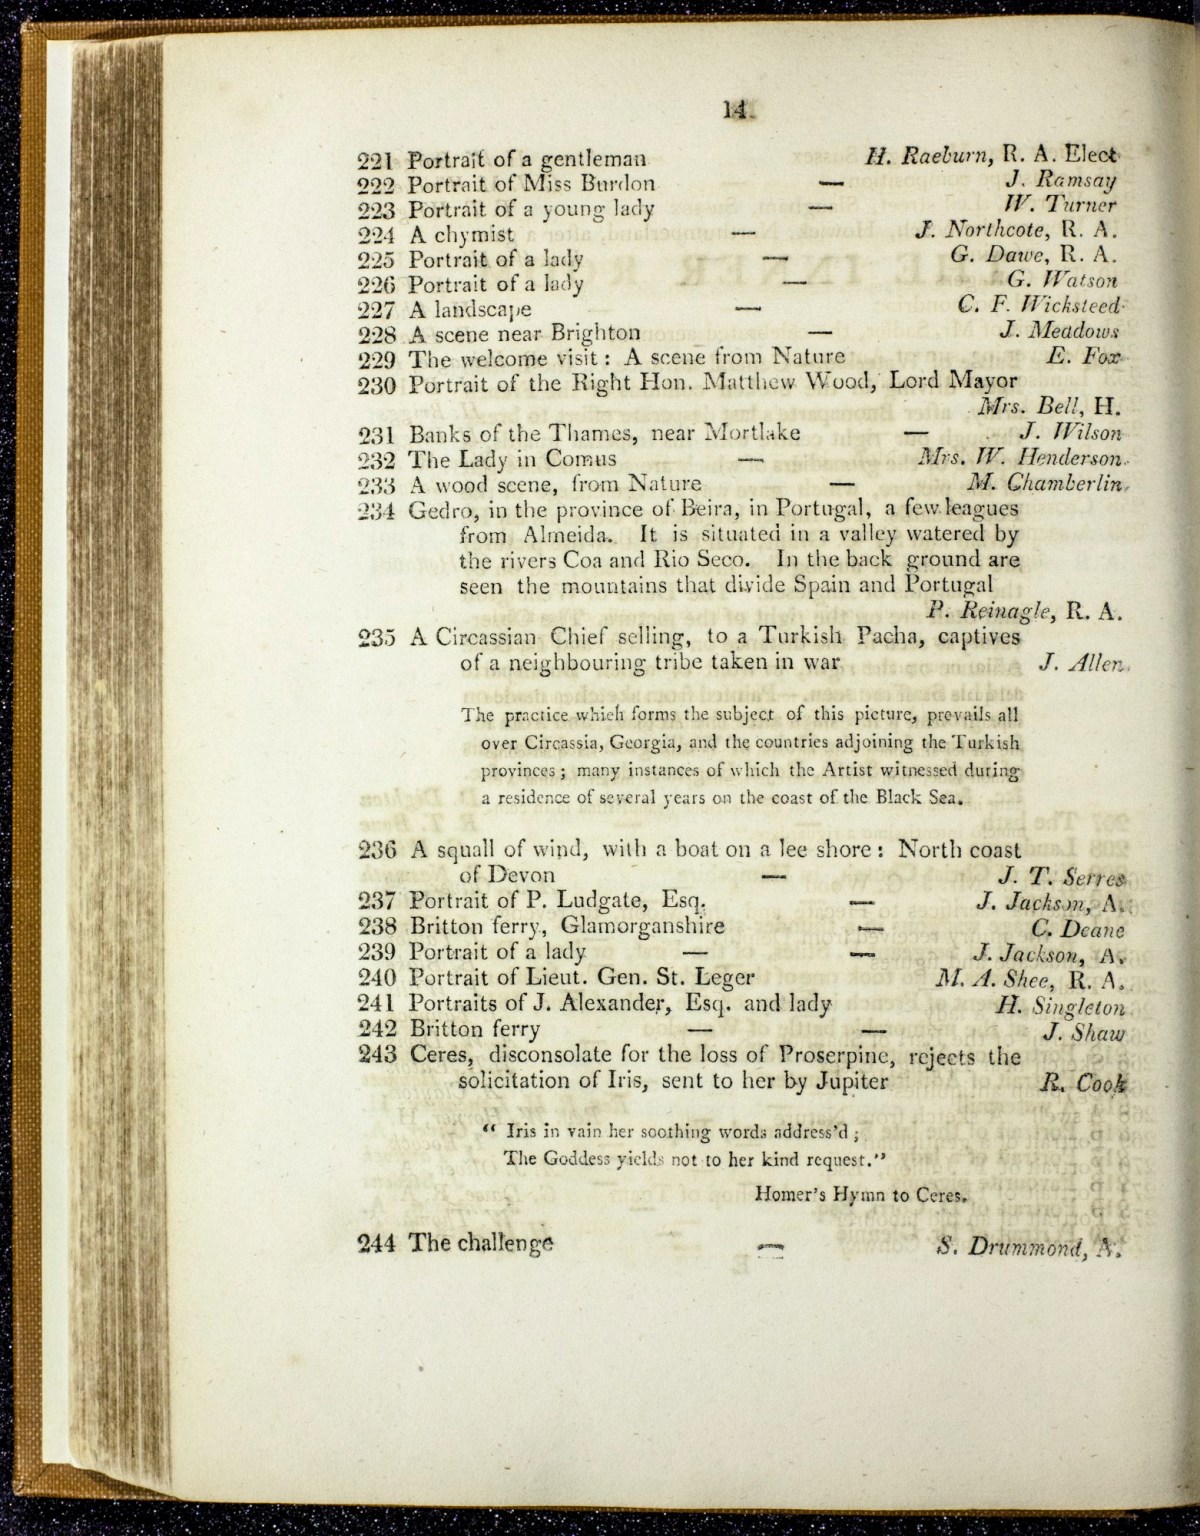 14
221 Portrait of a gentleman H. Raeburn, R. A. Elect
222 Portrait of Miss Burdon — J. Ramsay
223 Portrait of a young lady — W. Turner
224 A chymist — J. Northcote, R. A.
225 Portrait of a lady — G. Dawe, R. A.
226 Portrait of a lady — G. Watson
227 A landscape — C. F. Wicksteed
228 A scene near Brighton — J. Meadows
229 The welcome visit: A scene from Nature E. Fox
230 Portrait of the Right Hon. Matthew Wood, Lord Mayor
Mrs. Bell, H.
231 Banks of the Thames, near Mortlake — J. Wilson
232 The Lady in Comus — Mrs. W. Henderson.
233 A wood scene, from Nature — M. Chamberlin
234 Gedro, in the province of Beira, in Portugal, a few leagues
from Almeida. It is situated in a valley watered by
the rivers Coa and Rio Seco. In the back ground are
seen the mountains that divide Spain and Portugal
P. Reinagle, R. A.
235 A Circassian Chief selling, to a Turkish Pacha, captives
of a neighbouring tribe taken in war J. Allen
The practice which forms the subject of this picture, prevails all
over Circassia, Georgia, and the countries adjoining the Turkish
provinces; many instances of which the Artist witnessed during
a residence of several years on the coast of the Black Sea.
236 A squall of wind, with a boat on a lee shore: North coast
of Devon — J. T. Serres
237 Portrait of P. Ludgate, Esq. — J. Jackson, A.
238 Britton ferry, Glamorganshire — C. Deane
239 Portrait of a lady — — J. Jackson, A.
240 Portrait of Lieut. Gen. St. Leger M. A. Shee, R. A.
241 Portraits of J. Alexander, Esq. and lady H. Singleton
242 Britton ferry — — J. Shaw
243 Ceres, disconsolate for the loss of Proserpine, rejects the
solicitation of Iris, sent to her by Jupiter R. Cook
“ Iris in vain her soothing words address'd ;
The Goddess yields not to her kind request.”
Homer's Hymn to Ceres.
244 The challenge — S. Drummond, A.